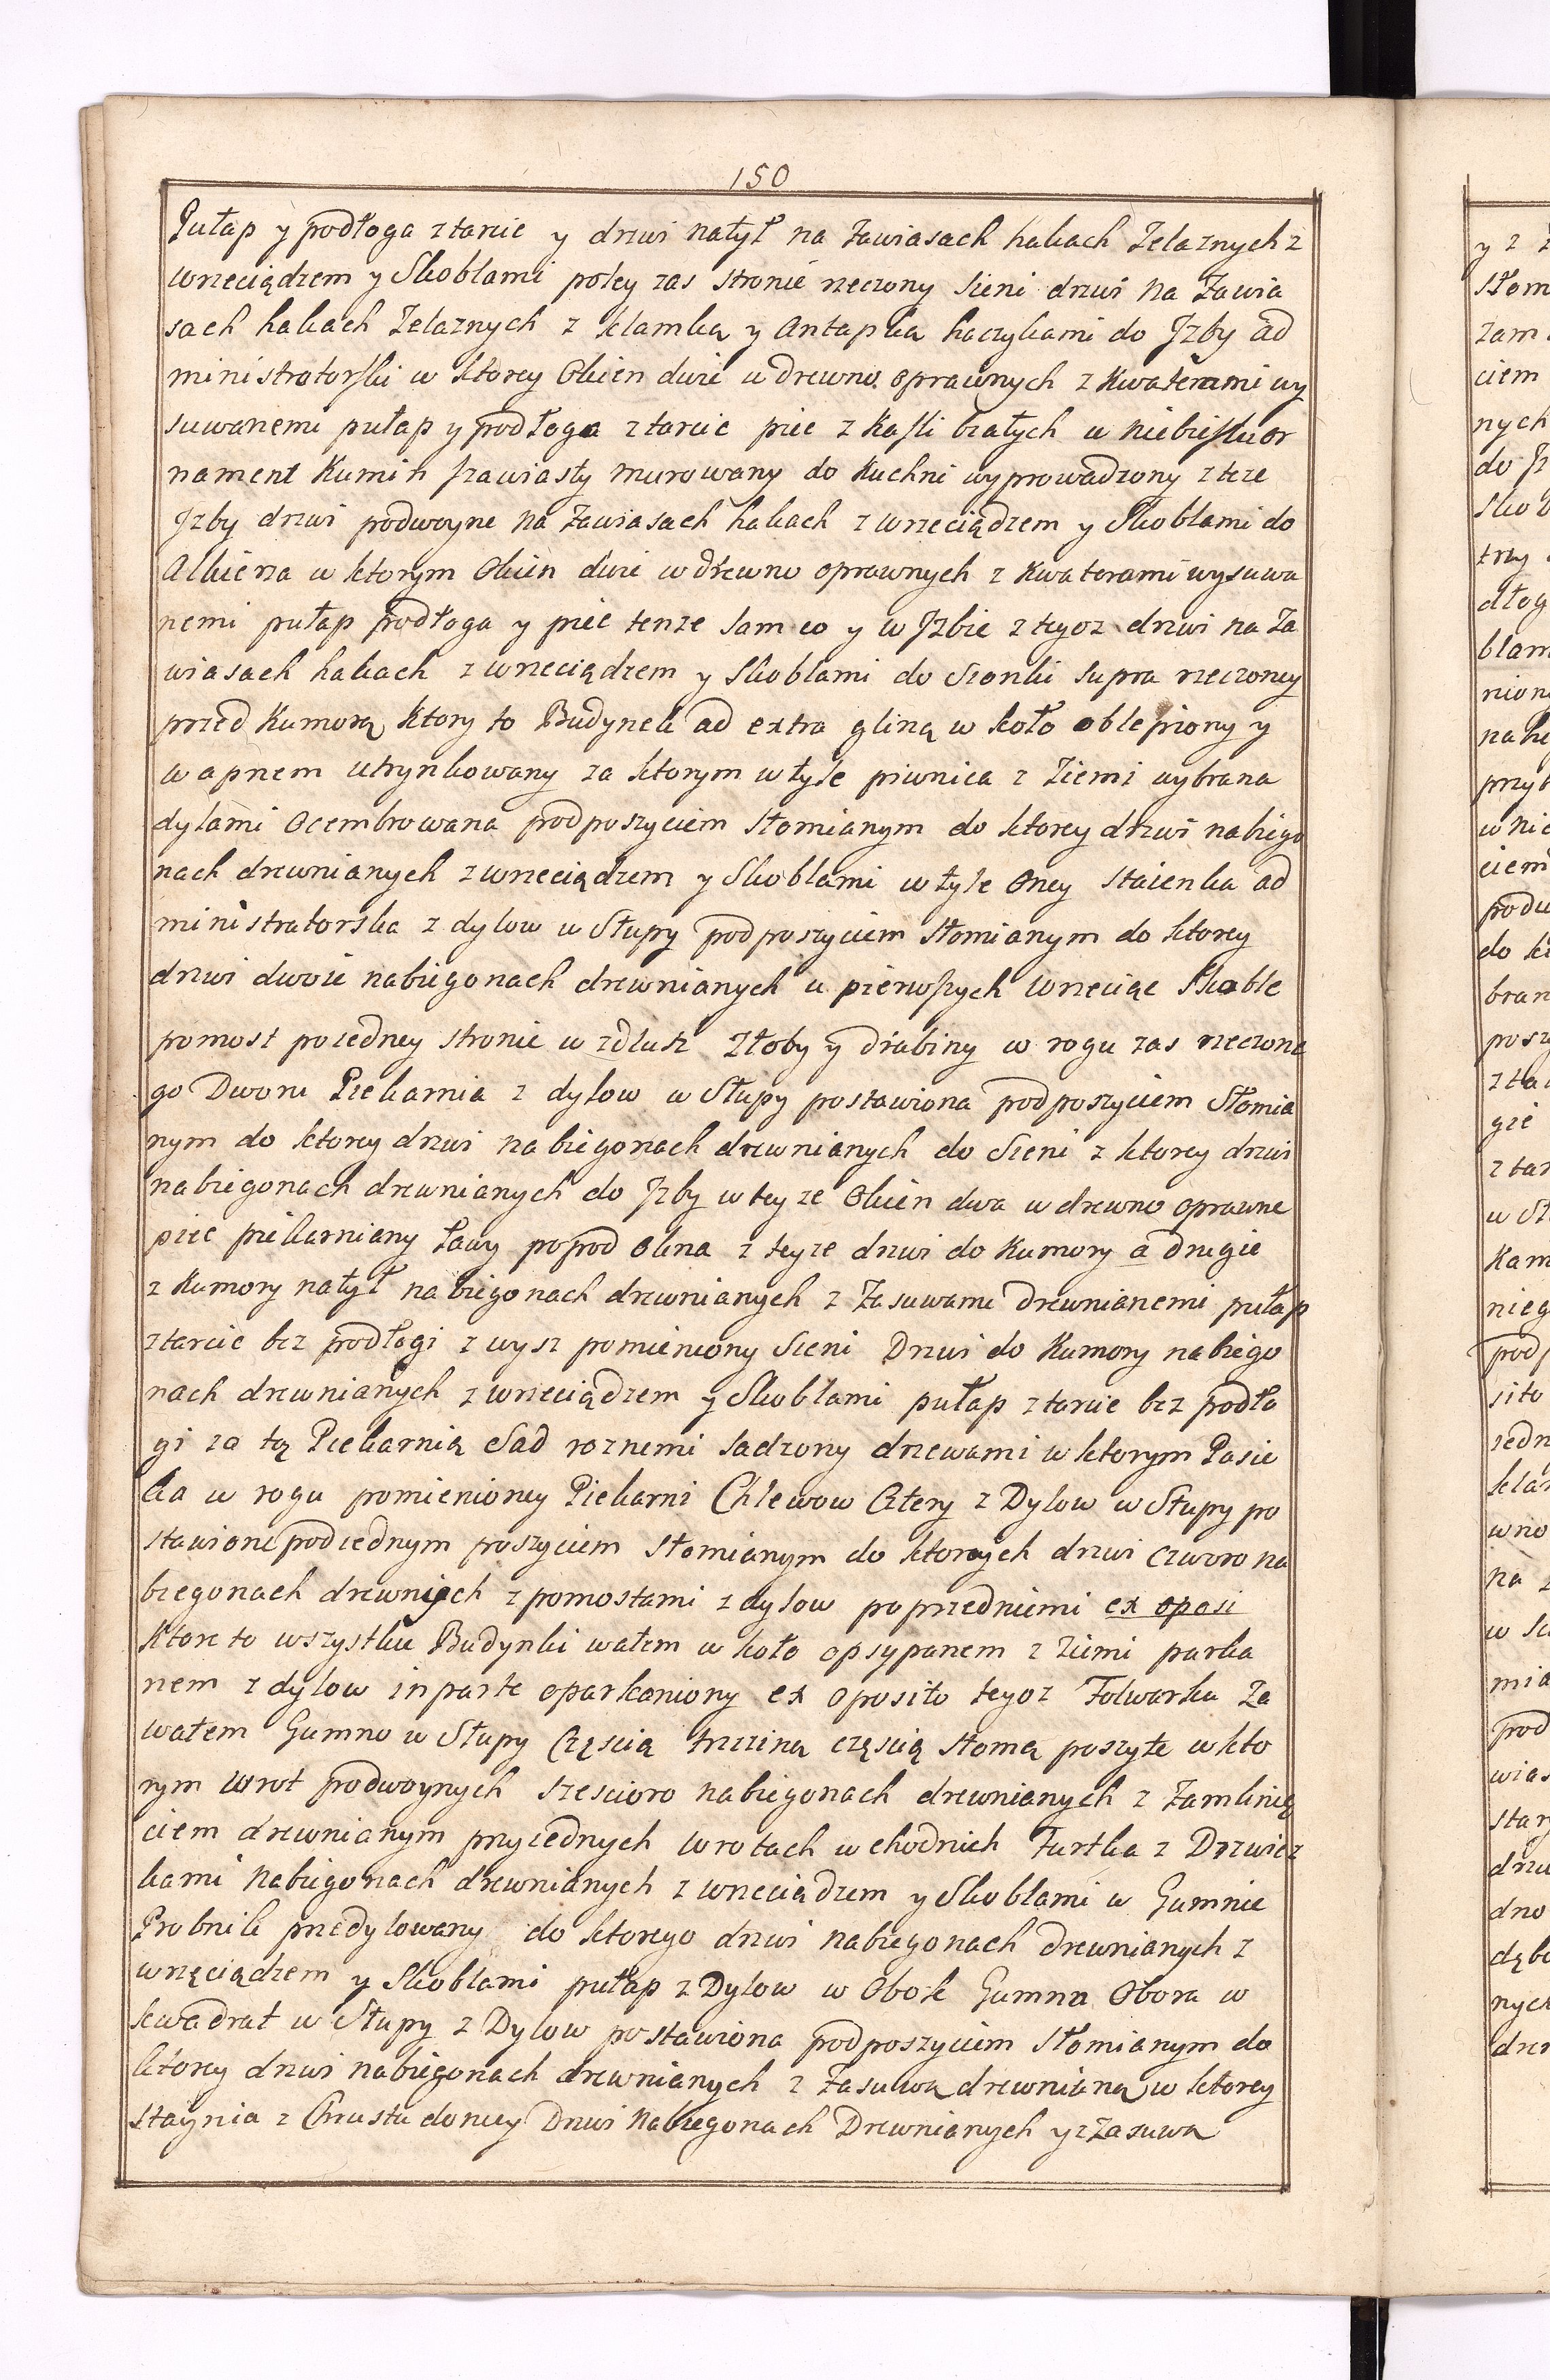 150
Pułap y podłoga ztarcic y drzwi natył na Zawiasach hakach Zelaznych z
wrzeciądzem y Skoblami poley zas stronie rzeczony Sieni drzwi na Zawia
sach hakach Zelaznych z klamką y Antapką haczykami do Jzby ad
ministratorski w ktorey Okien dwie w drewno oprawnych z Kwaterami wy
suwanemi pułap y podłoga ztarcic piec z Kafli białych w niebieski or
nament Kumin szawiasty murowany do Kuchni wyprowadzony z teze
Jzby drzwi podwoyne na Zawiasach hakach z wrzeciądzem y Skoblami do
Alkierza w ktorym Okien dwie w drewno oprawnych z Kwaterami wysuwa
nemi pułap podłoga y piec tenze sam co y w Jzbie z tegoz drzwi na Za
wiasach hakach z wrzeciądzem y Skoblami do Sionki supra rzeczoney
przed Kumorą ktory to Budynek ad extra gliną w koło oblepiony y
wapnem utrynkowany za ktorym w tyle piwnica z Ziemi wybrana
dylami Ocembrowana podposzyciem Słomianym do ktorey drzwi nabiego
nach drewnianych z wrzeciądzem y Skoblami w tyle Oney staienka ad
ministratorska z dylow w Słupy podposzyciem Słomianym do ktorey
drzwi dwoie nabiegonach drewnianych u pierwszych wrzeciąc Skoble
pomost poiedney stronie w zdłusz Złoby y drabiny w rogu zas rzeczone
go Dworu Piekarnia z dylow w Słupy postawiona podposzyciem Słomia
nym do ktorey drzwi nabiegonach drewnianych do Sieni z ktorey drzwi
nabiegonach drewnianych do Jzby w teyze Okien dwa w drewno oprawne
piec piekarniany ławy popod okna z teyze drzwi do Kumory a drugie
z Kumory natył nabiegonach drewnianych z Zasuwami drewnianemi pułap
ztarcic bez podłogi z wysz pomieniony Sieni Drzwi do Kumory nabiego
nach drewnianych z wrzeciądzem y Skoblami pułap ztarcic bez podło
gi za tą Piekarnią Sad roznemi sadzony drzewami w ktorym Pasie
ka w rogu pomienioney Piekarni Chlewow Cztery z Dylow w Słupy po
stawione podiednym poszyciem Słomianym do ktorych drzwi czworo na
biegonach drewnięch z pomostami z dylow poprzedniemi ex oposi
ktore to wszystkie Budynki wałem w koło opsypanem z Ziemi parka
nem z dylow in parte oparkaniony ex oposito tegoz Folwarku Za
wałem Gumno w Słupy Częscią trzciną częscią słomą poszyte w kto
rym wrot podwoynych szescioro nabiegonach drewnianych z Zamknię
ciem drewnianym przyiednych wrotach wchodnich Furtka z Drzwicz
kami nabiegonach drewnianych z wrzeciądzem y Skoblami w Gumnie
Probnik przedylowany do ktorego drzwi nabiegonach drewnianych z
wrzęciądzem y Skoblami pułap z Dylow w Obok Gumna Obora w
kwadrat w Słupy z Dylow postawiona podposzyciem Słomianym do
ktorey drzwi nabiegonach drewnianych z Zasuwą drewnianą w ktorey
staynia z Chrustu do niey Drzwi nabiegonach Drewnianych y z Zasuwą